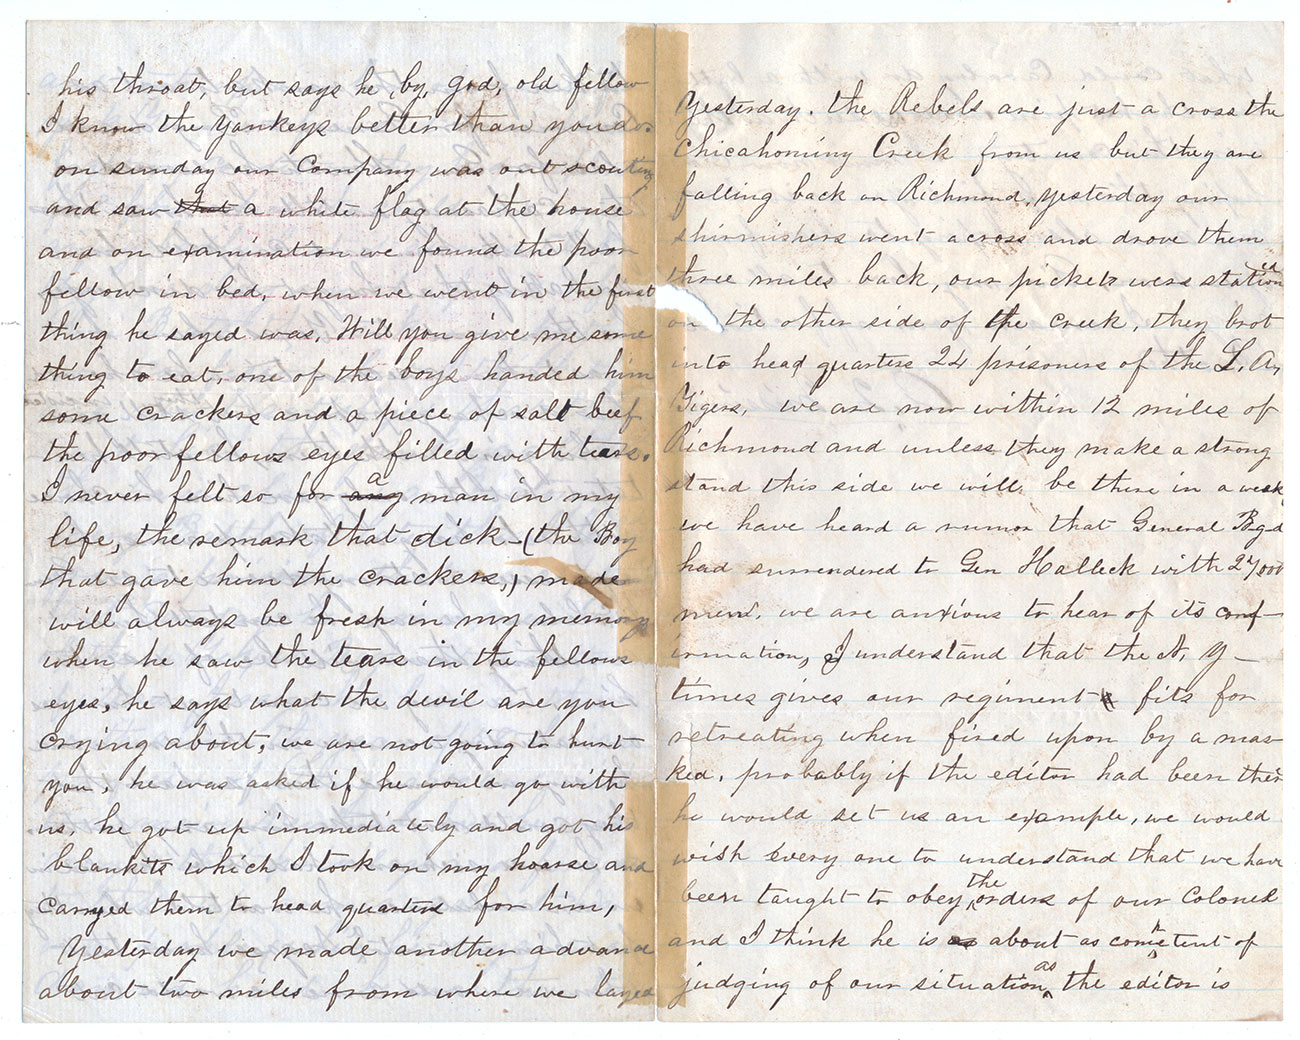 his throat, but says he, by, God, old fellow
I know the yankeys better than you do.
on sunday our Company was out scouting
and saw that a white flag at the house
and on examination we found the poor
fellow in bed, when we went in the first
thing he sayed was, Will you give me some
thing to eat, one of the boys handed him
some crackers and a piece of salt beef
the poor fellows eyes filled with tears.
I never felt so for any a man in my
life, the remark that dick - (the Boy
that gave him the crackers,) made
will always be fresh in my memory
when he saw the tears in the fellows
eyes, he says what the devil are you
crying about, we are not going to hurt
you, he was asked if he would go with
us, he got up immediately and got his
blankits which I took on my hoarse and
carryed them to head quarters for him,
Yesterday we made another advance
about two miles from where we layed
Yesterday. the Rebels are just a cross the
Chicahominy Creek from us but they are
falling back on Richmond, yesterday our
skirmishers went across and drove them
three miles back, our pickets were stationid
on the other side of the creek, they brot
into head quarters 24 prisoners of the L. A,
Tigers, we are now within 12 miles of
Richmond and unless they make a strong
stand this side we will be there in a week
we have heard a rumor that General Bgd
had surrendered to Gen Halleck with 27,000
men. we are anxious to hear of its conf-
irmation, I understand that the N, Y-
times gives our regiment fits for
retreating when fired upon by a mas-
ked, probably if the editor had been their
he would set us an example, we would
wish every one to understand that we have
been taught to obey, the orders of our Colonel
and I think he is as about as competent of
judging of our situation as the editor is